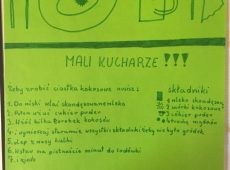 MALI KUCHARZE !!!
Żeby zrobić ciastka kokosowe musisz:
1. Do miski wlać skondensowane mleko
2. Potem wsuć cukier puder
3. Wsuć kilka torebek kokosów
4. i wymieszaj starannie wszystkie składniki żeby nie było grudek
5. Lep z masy kulki
6. Wstaw na piętnaście minut do lodówki
7. i zjedz
składniki
mleko skondens.
wiórki kokosowe
cukier puder